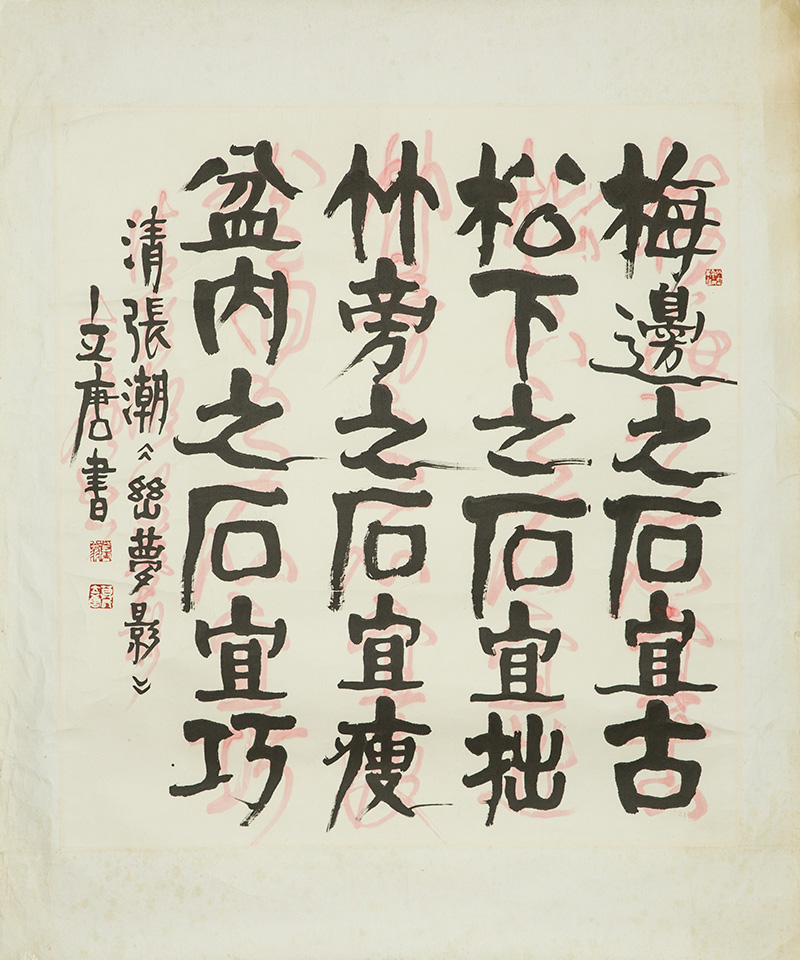 梅邊之石宜古
松下之石宜拙
竹旁之石宜瘦
盆内之石宜巧
清張潮《幽夢影》
立唐書